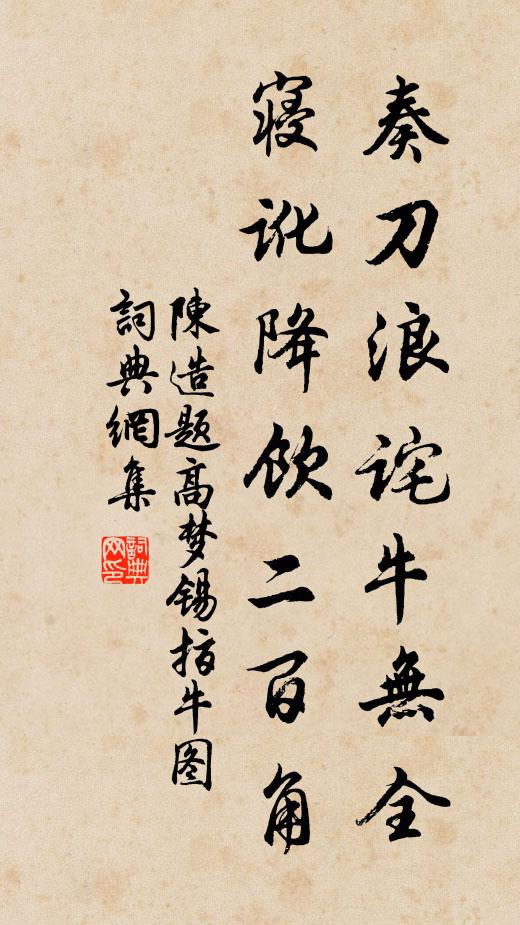 奏刀浪詫牛無全
寝訛降飲二百角
陳造題高梦锡指牛图
詞典網集
詞典
网印